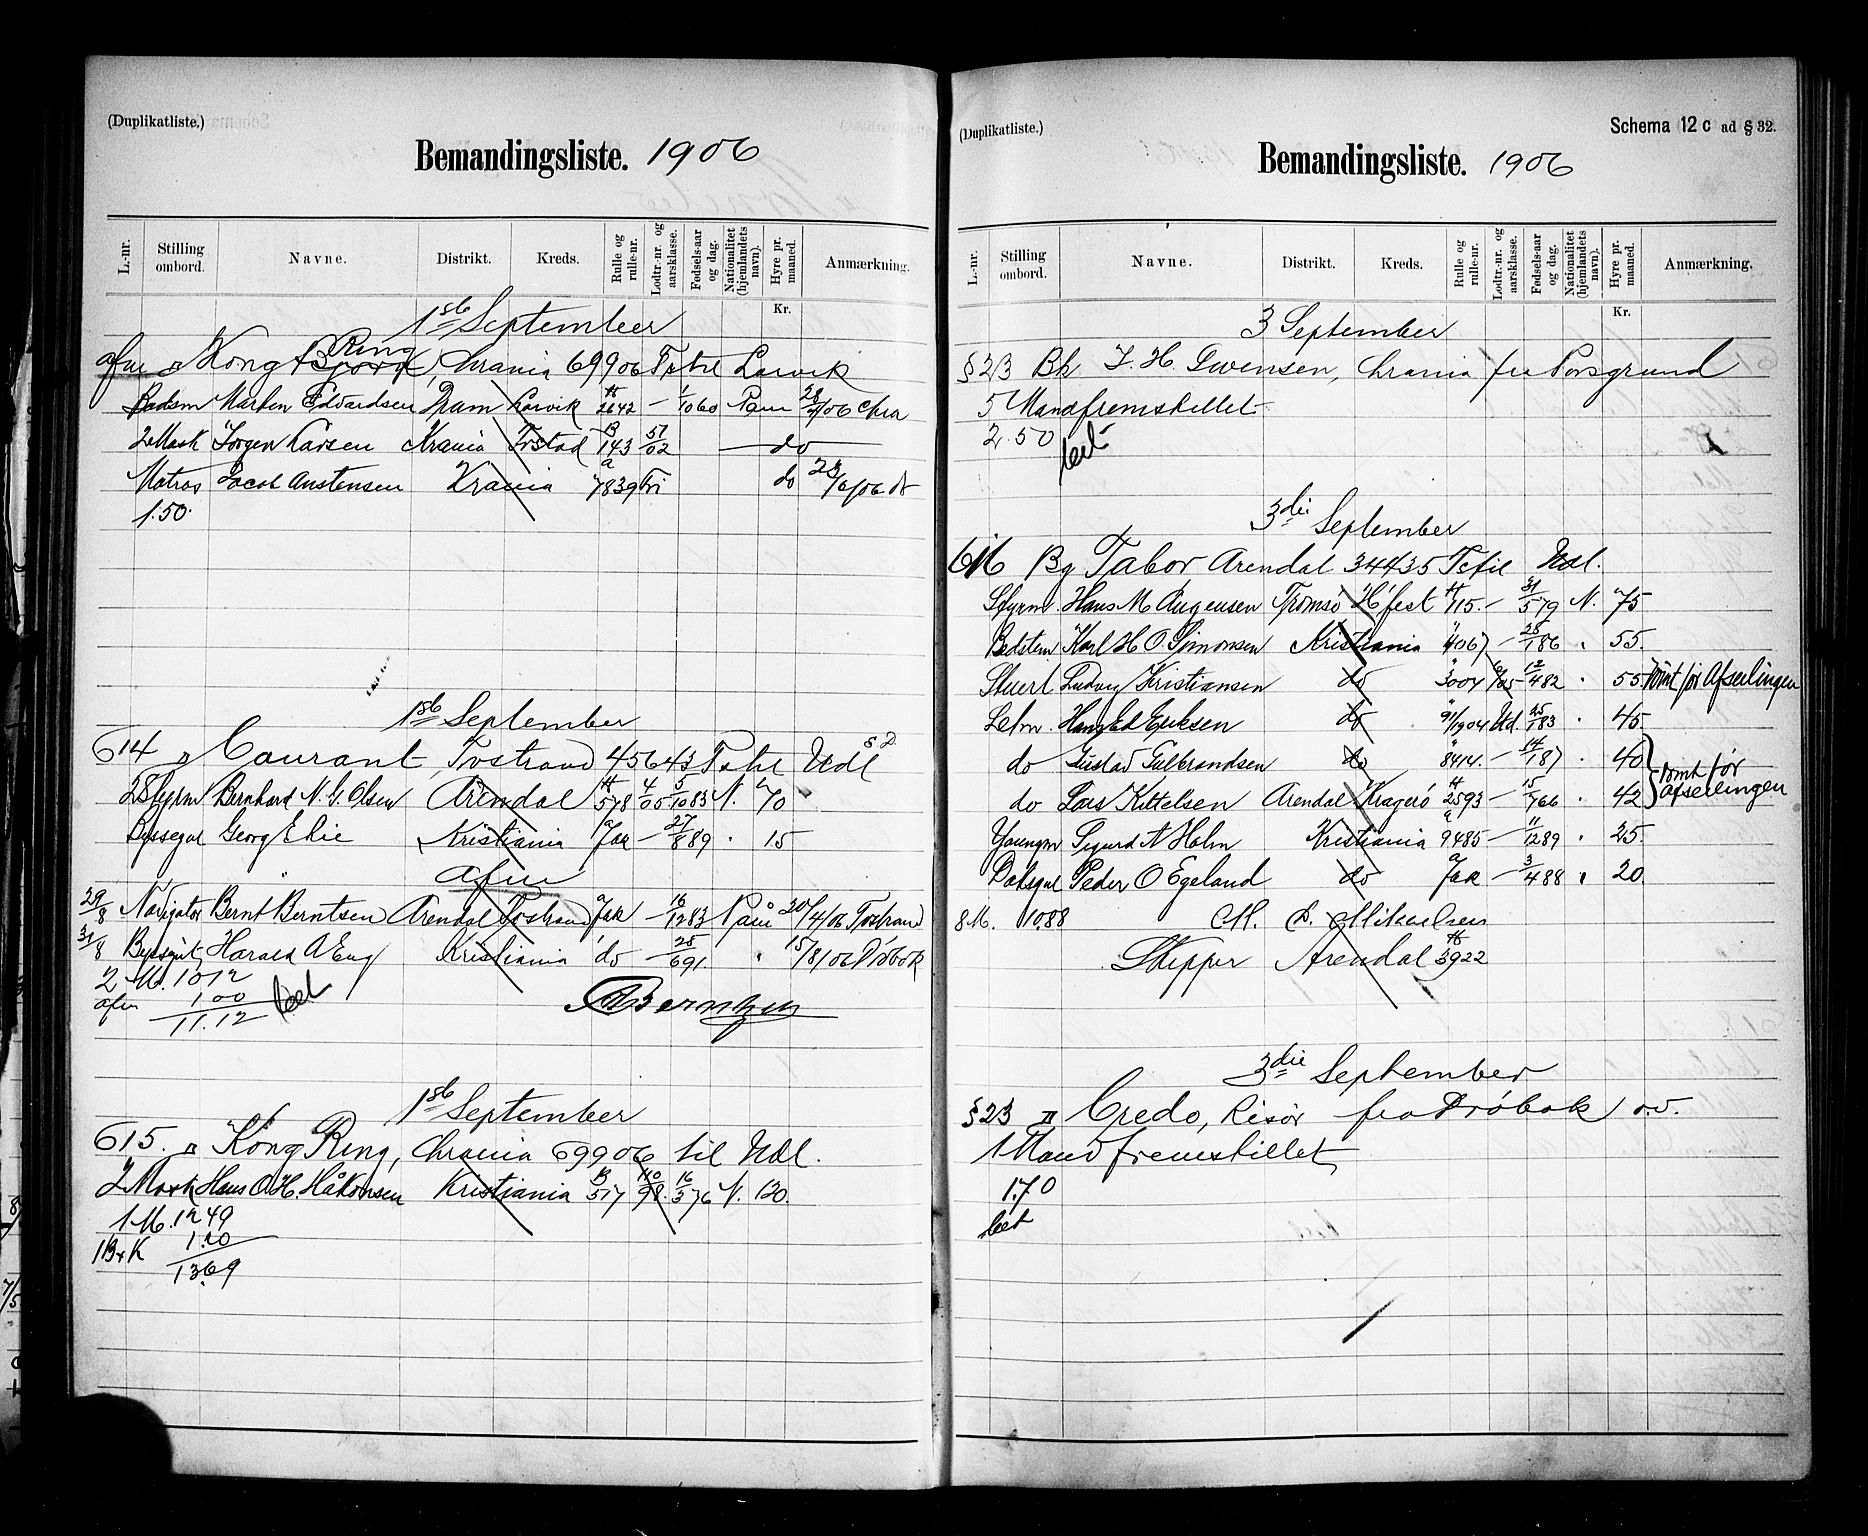 (Duplikatliste.)
Bemandingsliste. 1906
L.-nr. Stilling ombord. Navne. Distrikt. Kreds. Rulle og rulle-nr. Lodtr.-nr. og aarsklasse. Fødsels-aar og dag. Nationalitet (hjemlandets navn). Hyre pr. maaned. Anmærkning.
Kr.
1ste September
Kong Ring, Crania 69906 Larvik
Baadsm Edvardsen Dram Larvik H 2642 — 1/10 60 28/ /06 Chra
2 Mask Jørgen Larsen Krania B 143 57/02 do
Matros Jacob Austensen Krania a 7839 Fri do 23/6/06 do
1.50
1ste September
614 Courant, Tvestrand 45643 Udl
2 Styrm Bernhard N. G. Olsen Arendal H 578 4/05 5/10 83 N. 70
Georg Elie Kristiania a Jak — 27/8 89 " 15
Afm
29/8 Navigatør Bernt Berntsen Arendal Tvestrand a Jak — 16/12 83 20/4/06 Tvestrand
31/8 Harald A Eng Kristiania do — 25/6 91 " 15/8/06 Drøbak
2 M. 1012
afm 100
11.12 bet
Berntzen
1ste September
615. Kong Ring, Crania 69906 til Udl.
2 Mask Hans O H. Håkonsen Kristiania B 517 110/98. 16/3 76 N. 120.
1 M. 1249
1 B+K 1.20
1369
(Duplikatliste.)
Schema 12 c ad § 32.
Bemandingsliste. 1906
L.-nr. Stilling ombord. Navne. Distrikt. Kreds. Rulle og rulle-nr. Lodtr.-nr. og aarsklasse. Fødsels-aar og dag. Nationalitet (hjemlandets navn). Hyre pr. maaned. Anmærkning.
Kr.
3 September
§ 23 Bk J. H. Svensen, Crania fra Porsgrund
5 Mand fremstillet
2.50
bet
3die September
616 Bg Tabor Arendal 34435 Udl.
Styrm. Hans M Tromsø H'fest H 115. — 31/5 79 N. 75
Bedstem Karl H O Simonsen Kristiania " 4067 — 25/1 86 " 55.
Stuert Ludvig Kristiansen do " 3004 12/4 82 " 55. Rømt før Afseilingen
Letm. Hans Ed Eriksen do " 91/904 Ud. 25/1 83 " 45
do Gustav Gulbrandsen do " 8414. — 14/1 87 " 40
do Lars Kittelsen Arendal Kragerø H 2593 — 15/7 66 " 42 rømt før afseilingen
Youngm Sigurd N Holm Kristiania a 9485 — 11/12 89 " 25.
Dæksgut Peder O Egeland do a Jak — 3/4 88 " 20.
8 M. 10.88 M. Mikaelsen
Skipper Arendal H 3922
3die September
§ 23 Credo, Risør fra Drøbak
1 Mand fremstillet
1.70
bet